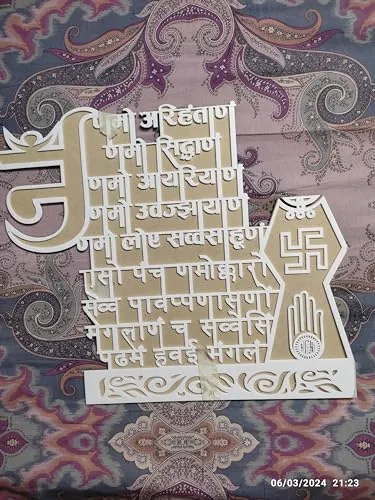 णमो अरिहंताणं
णमो सिद्धाणं
णमो आयरियाणं
णमो उवज्झायाणं
णमो लोए सव्वसाहूणं
एसो पंच णमोक्कारो
सव्व पावप्पणासणो
मंगलाणं च सव्वेसिं
पढमं हवई मंगलं
06/03/2024 21:23